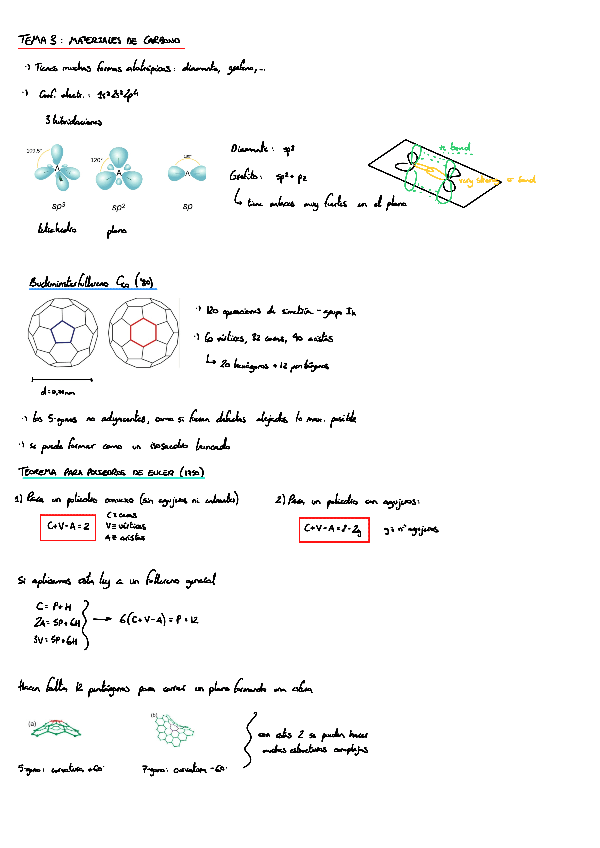 TEMA 3: MATERIALES DE CARBONO
·) Tienes muchas formas alotrópicas: diamante, grafeno,...
·) Conf. electr.: 1s² 2s² 2p⁴
3 hibridaciones
109,5°
A
120°
A
180°
A
sp³
sp²
sp
tetrahedro
plano
Diamante: sp³
Grafito: sp² + pz
↳ tiene enlaces muy fuertes en el plano
π bond
very strong σ bond
Buckminsterfullereno C₆₀ ('80)
d = 0,7 nm
·) 120 operaciones de simetría - grupo Ih
·) 60 vértices, 32 caras, 90 aristas
↳ 20 hexágonos + 12 pentágonos
·) los 5-gonos no adyacentes, como si fueran defectos alejados lo max. posible
·) se puede formar como un icosaedro truncado
TEOREMA PARA POLIEDROS DE EULER (1750)
1) Para un poliedro convexo (sin agujeros ni entrantes)
C+V-A = 2
C ≡ caras
V ≡ vértices
A ≡ aristas
2) Para un poliedro con agujeros:
C+V-A = 2-2g
g ≡ nº agujeros
Si aplicamos esta ley a un fullereno general
C = P+H
2A = 5P+6H
3V = 5P+6H
→ 6(C+V-A) = P = 12
Hacen falta 12 pentágonos para cerrar un plano formando una esfera
(a)
(b)
5-gono: curvatura +60°
7-gono: curvatura -60°
con estos 2 se pueden hacer
muchas estructuras complejas